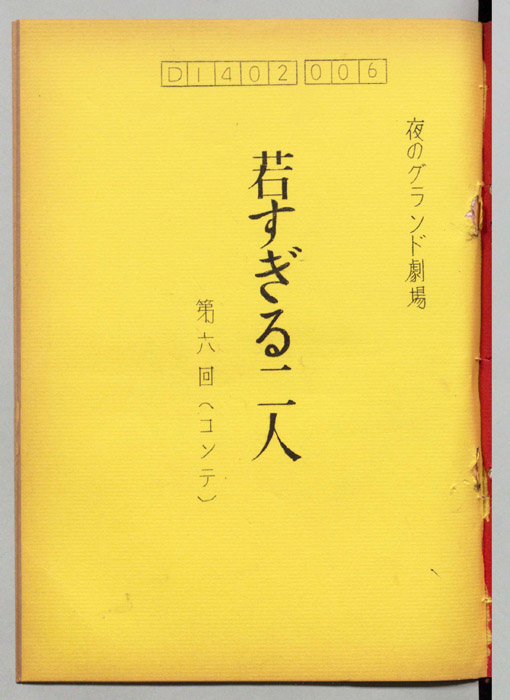 D1402 006
夜のグランド劇場
若すぎる二人
第六回(コンテ)